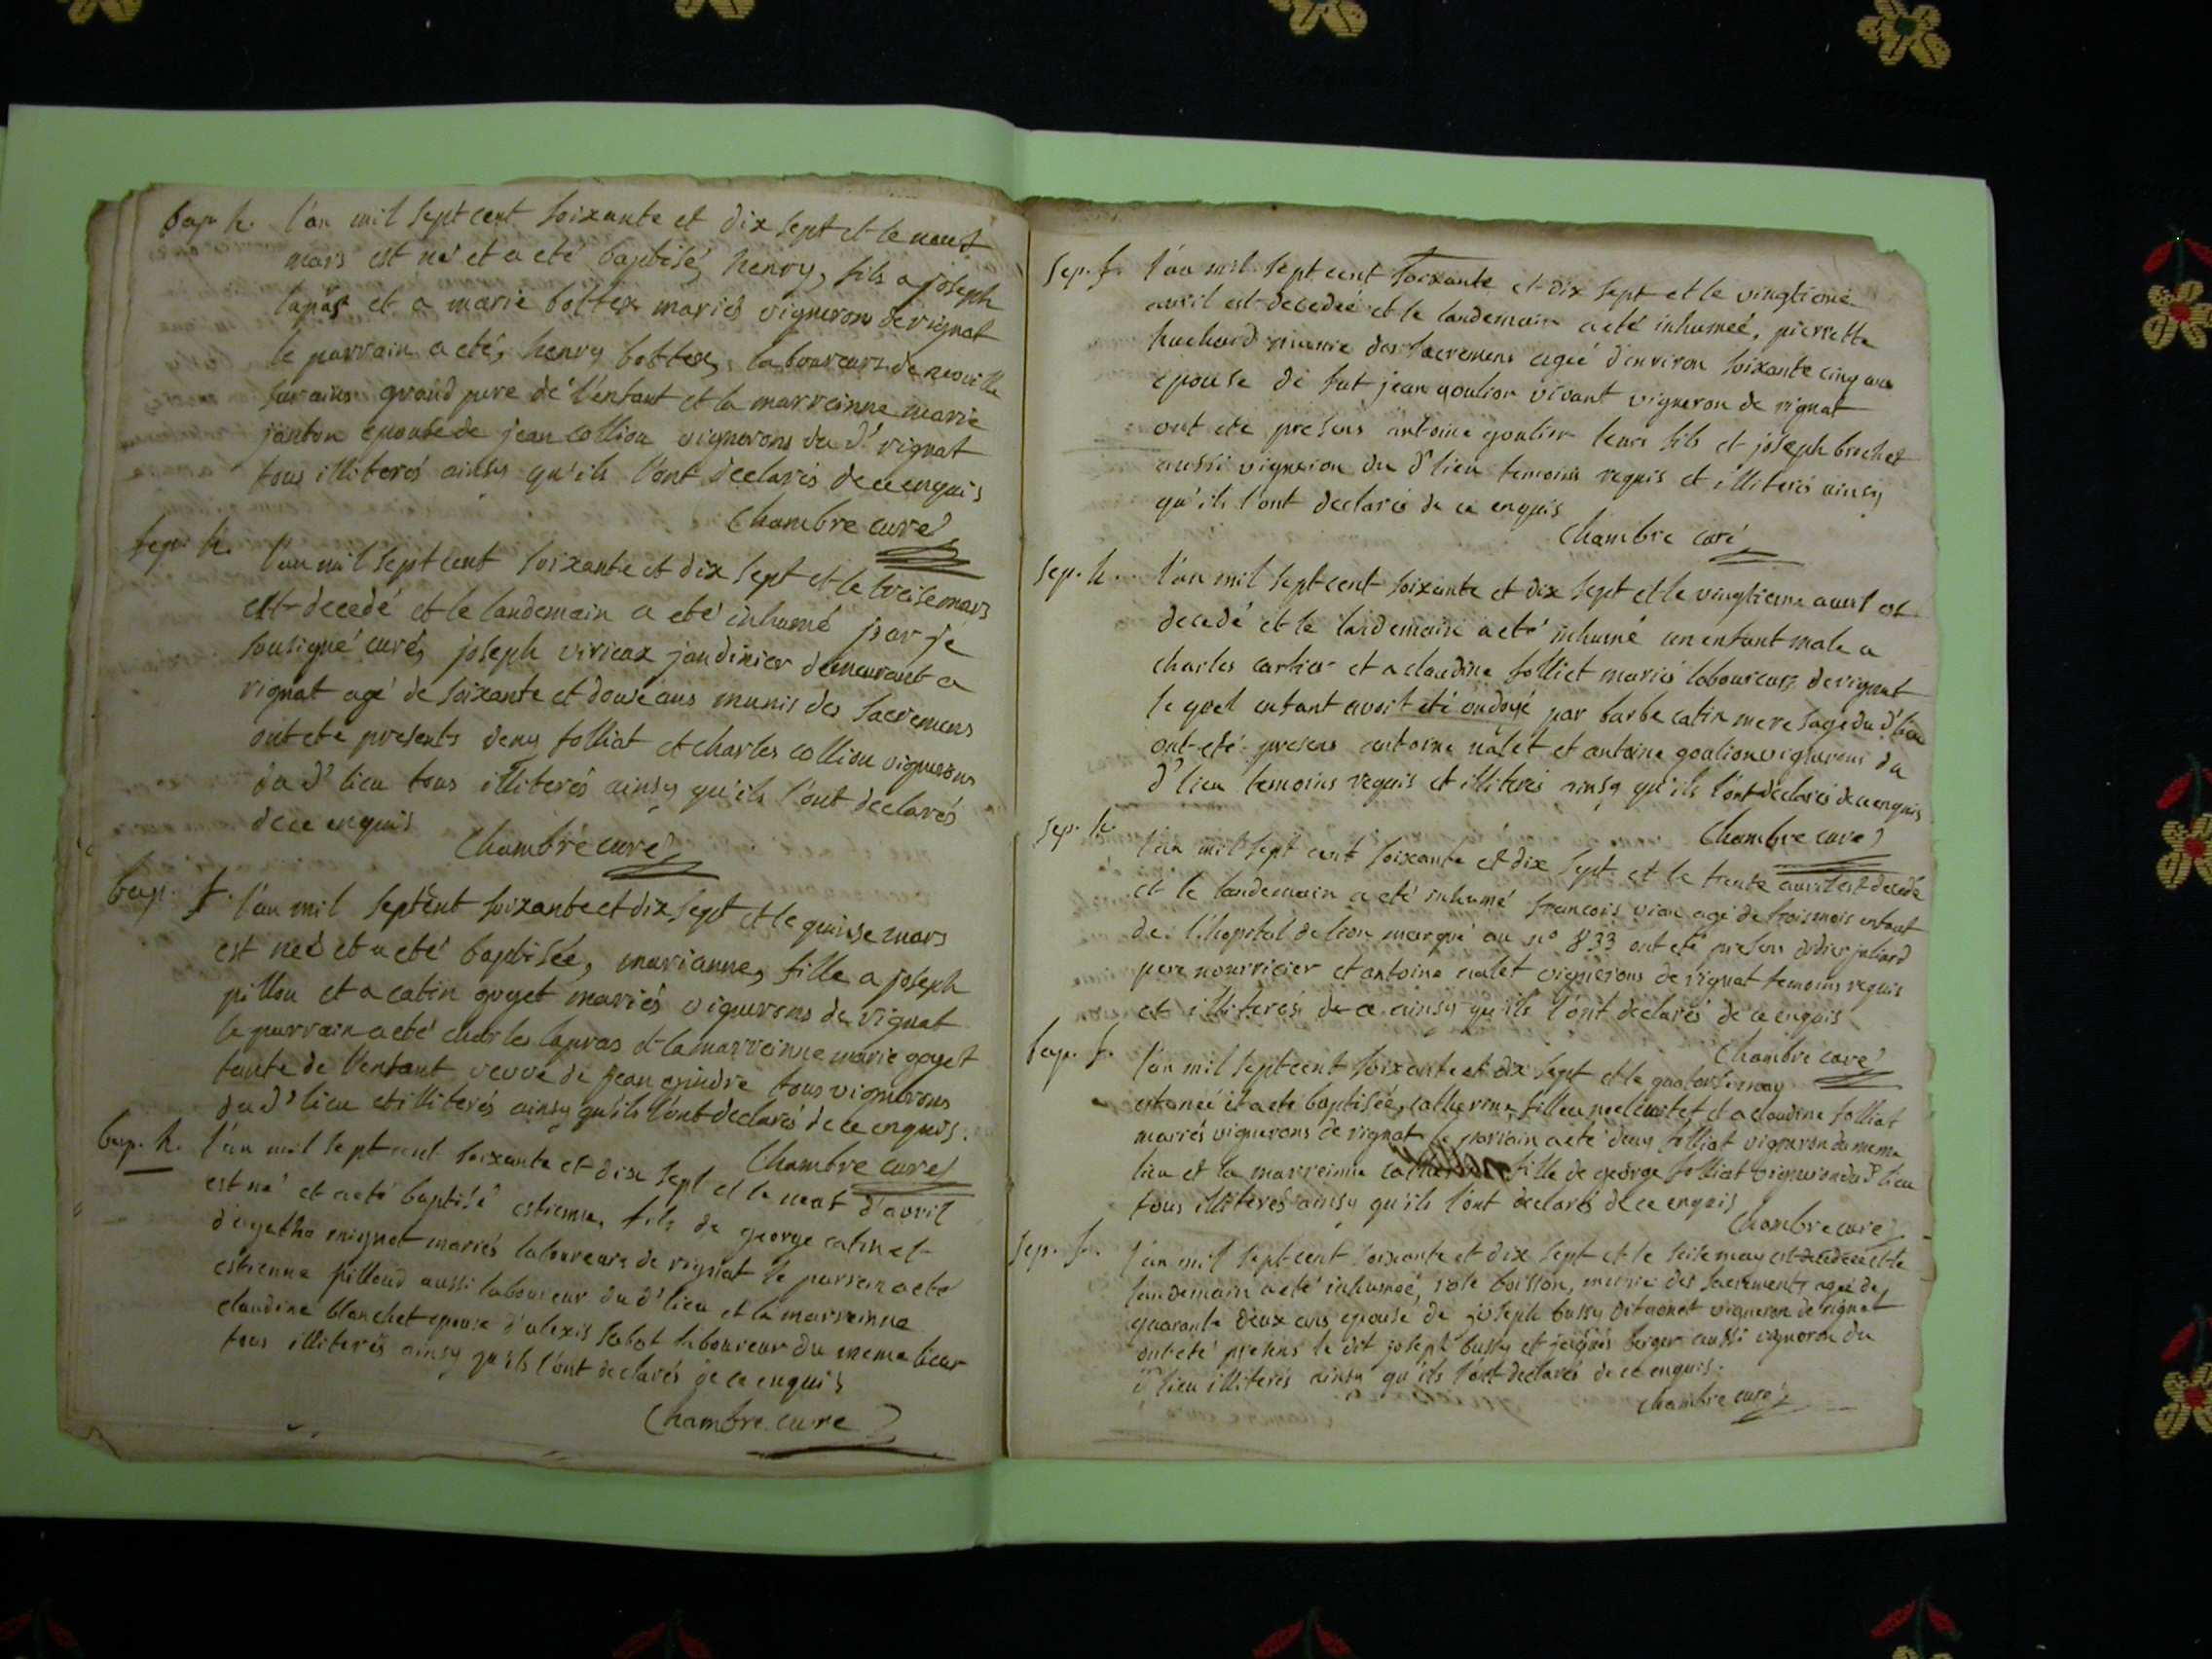 bap. h. l'an mil sept cent soixante et dix sept et le neuf
mars est né et a eté baptisé, henry, fils a joseph
lapras et a marie bottex mariés vignerons de rignat
le parrain a eté, henry bottex, laboureurs de neuville
sur ains grand pere de l'enfant et la marreinne marie
janton epouse de jean colliou vignerons du d' rignat
tous illiterés ainsy qu'ils l'ont declarés de ce enquis
Chambre curé
sep. h. l'an mil sept cent soixante et dix sept et le treise mars
est decedé et le landemain a eté inhumé par je
sousigné curé, joseph virieux jardinier demeurant a
rignat agé de soixante et douse ans munis des sacremens
ont eté presents deny folliat et charles colliou vignerons
du d' lieu tous illiterés ainsy qu'ils l'ont declarés
de ce enquis Chambre curé
bap. f. l'an mil septcent soixante et dix sept et le quinse mars
est née et a eté baptisée, marianne, fille a joseph
pillou et a catin goyet mariés vignerons de rignat
le parrain a eté charles lapras et la marreinne marie goyet
tante de l'enfant veuve de jean tous vignerons
du d' lieu et illiterés ainsy qu'ils l'ont declarés de ce enquis.
Chambre curé
bap. h. l'an mil sept cent soixante et dix sept et le neuf d'avril
est né et a eté baptisé estienne, fils de george catin et
d'agathe mignot mariés laboureurs de rignat le parrain a eté
estienne pilloud aussi laboureur du d' lieu et la marreinne
claudine blanchet epouse d'alexis sabot laboureur du meme lieu
tous illiterés ainsy qu'ils l'ont declarés de ce enquis
Chambre curé
sep. f. l'an mil sept cent soixante et dix sept et le vingtieme
avril est decedée et le landemain a eté inhumée, pierrette
huchard munie des sacremens agée d'environ soixante cinq ans
epouse de fut jean goulion vivant vigneron de rignat
ont eté presens antoine goulion leurs fils et joseph brochet
aussi vigneron du d' lieu temoins requis et illiterés ainsy
qu'ils l'ont declarés de ce enquis
Chambre curé
sep. h. l'an mil sept cent soixante et dix sept et le vingtieme avril est
decedé et le landemain a eté inhumé un enfant male a
charles carlier et a claudine folliet mariés laboureurs de rignat
le quel enfant avoit été ondoyé par barbe catin mere sage du d' lieu
ont eté presens antoine nalet et antoine goulion vignerons du
d' lieu temoins requis et illiterés ainsy qu'ils l'ont declarés de ce enquis
Chambre curé
sep. h. l'an mil sept cent soixante et dix sept et le trente avril est decedé
et le landemain a eté inhumé francois vian agé de trois mois enfant
de l'hopital de lion marqué au n° 833 ont eté presens didier juliard
pere nourricier et antoine nalet vignerons de rignat temoins requis
et illiterés de ce ainsy qu'ils l'ont declarés de ce enquis
Chambre curé
bap. f. l'an mil sept cent soixante et dix sept et le quatorse may
est née et a eté baptisée, catherine fille a noel et a claudine folliat
mariés vignerons de rignat le parrain a eté deny folliat vigneron du meme
lieu et la marreinne fille de george folliat vigneron du d' lieu
tous illiterés ainsy qu'ils l'ont declarés de ce enquis
Chambre curé
sep. f. l'an mil sept cent soixante et dix sept et le seise may est decedée et le
landemain a eté inhumée, rose boisson, munie des sacrements agée de
quarante deux ans epouse de joseph bussy dit monet vigneron de rignat
ont eté presens le dit joseph bussy et berger aussi vigneron du
d' lieu illiterés ainsy qu'ils l'ont declarés de ce enquis.
Chambre curé